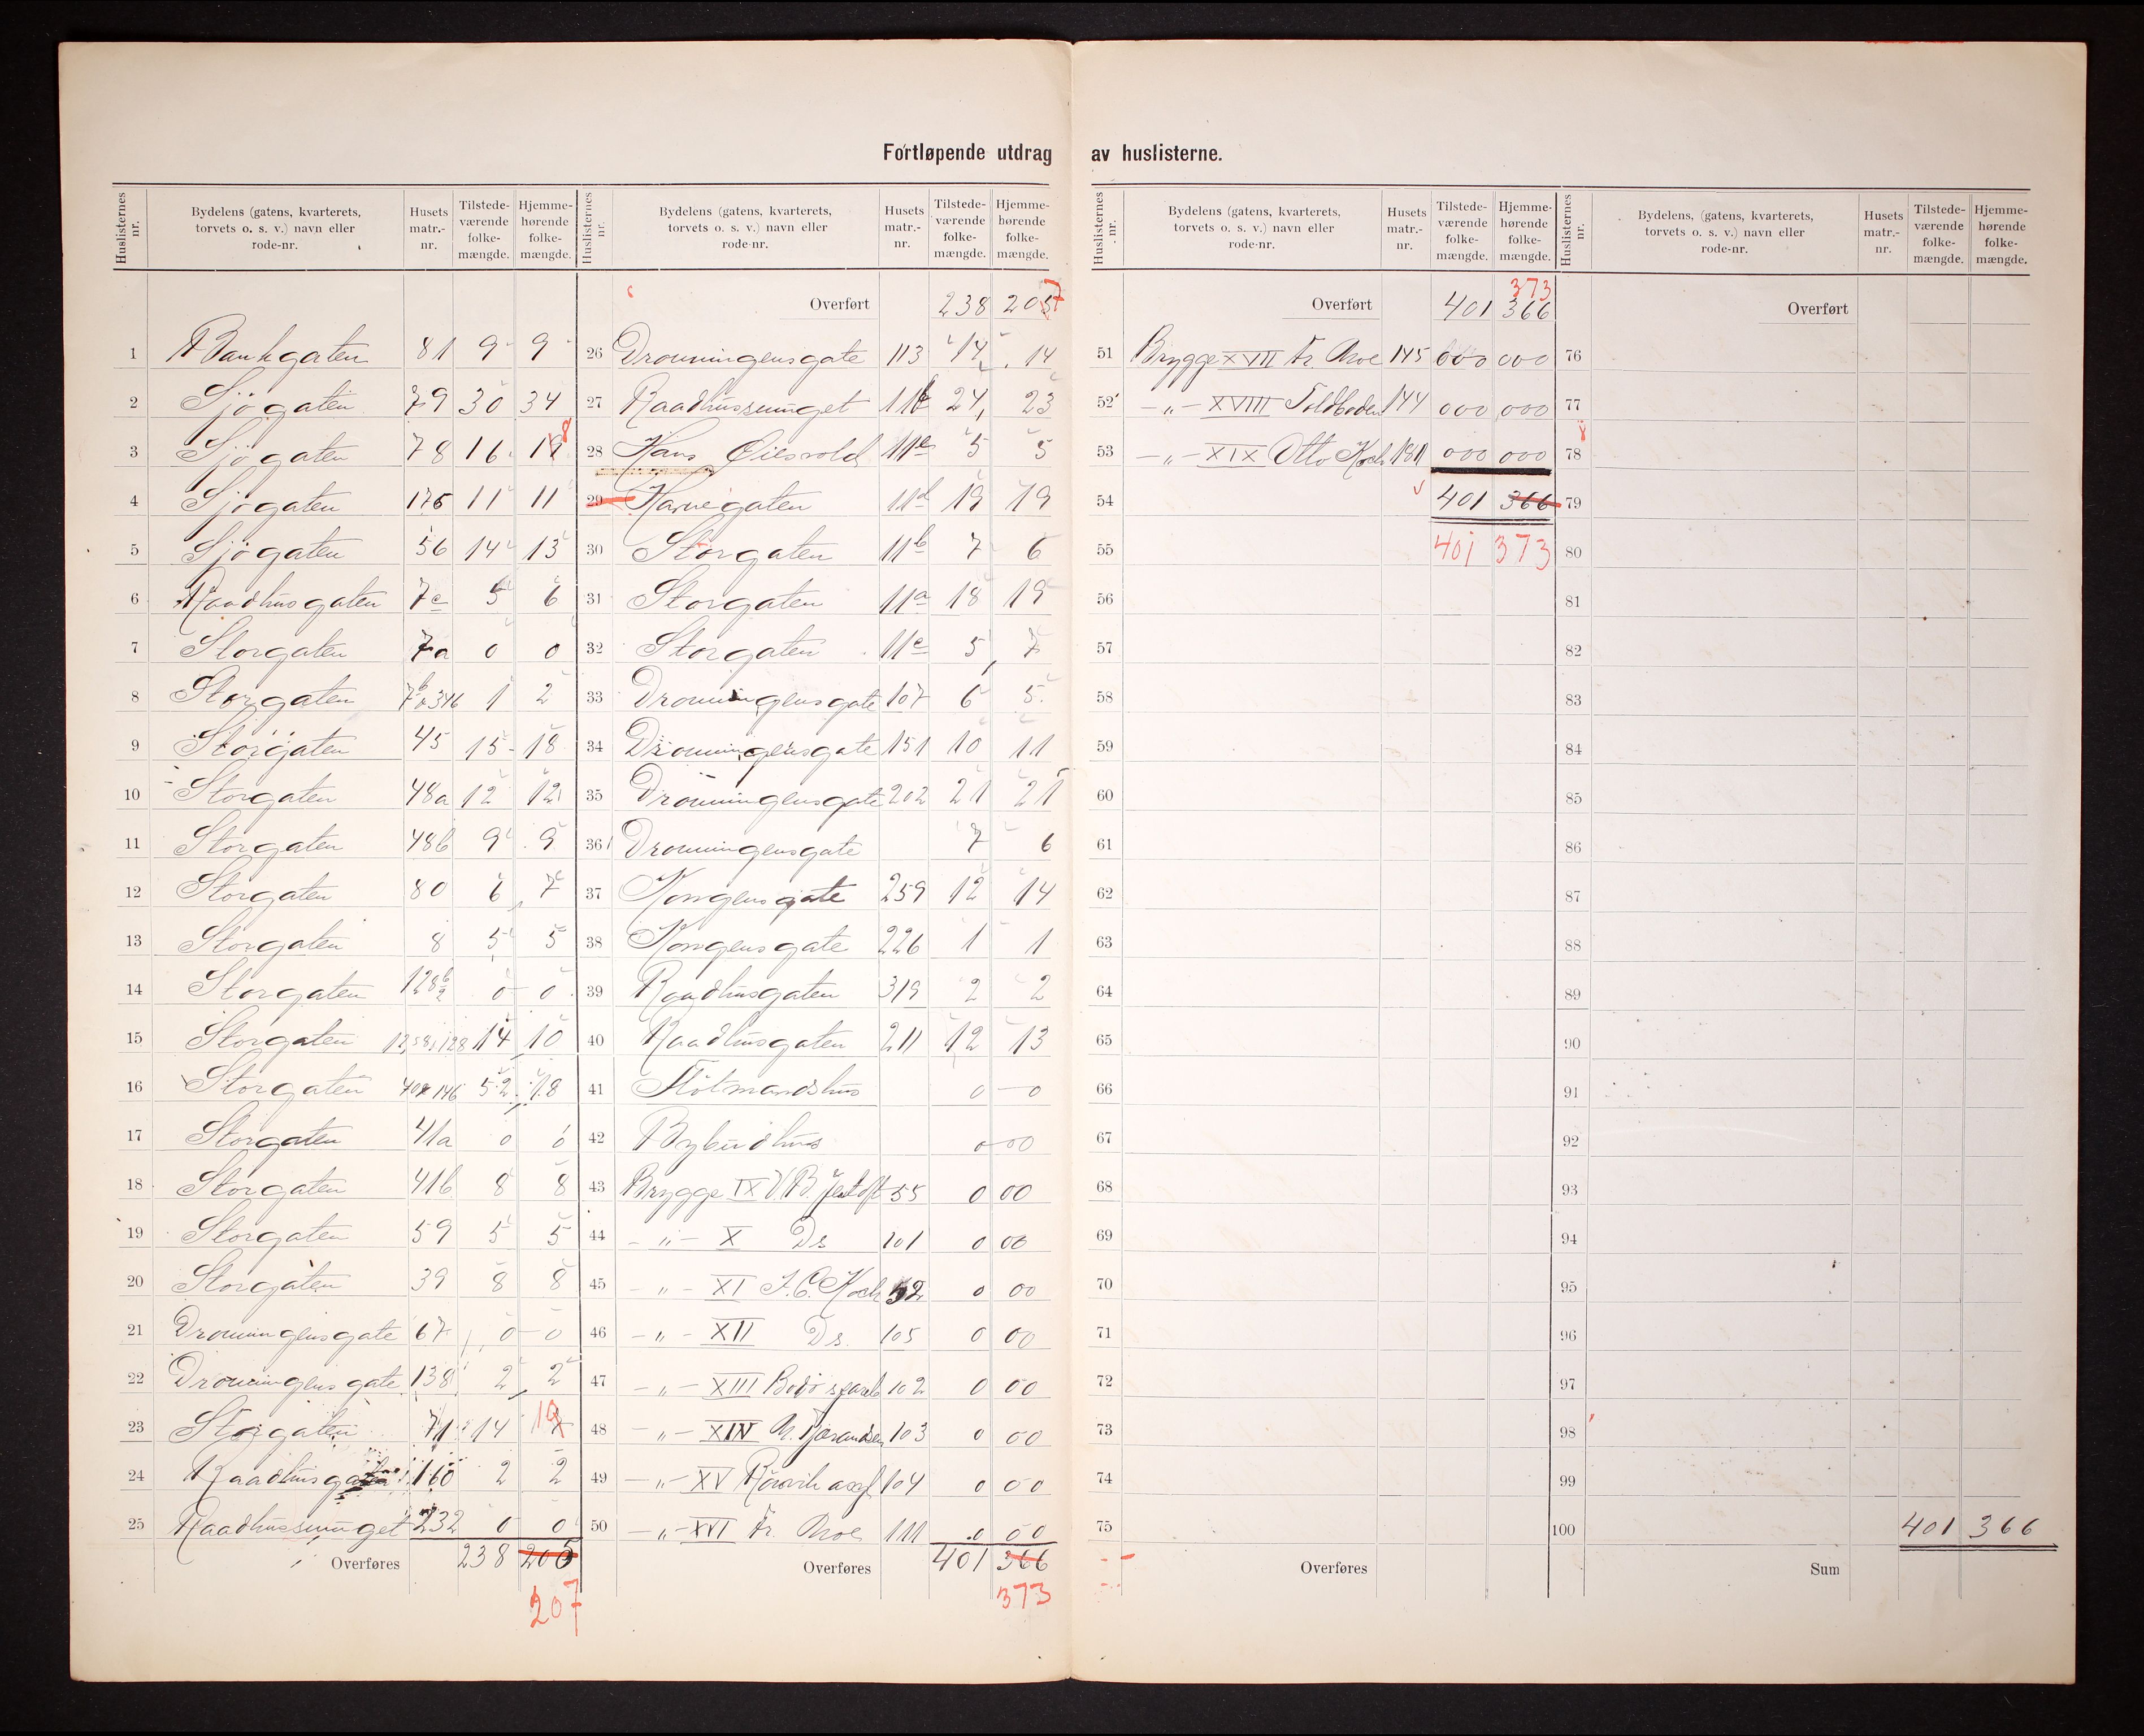 Fortløpende utdrag av huslisterne.
Huslisternes nr. | Bydelens (gatens, kvarterets, torvets o. s. v.) navn eller rode-nr. | Husets matr.-nr. | Tilstede-værende folke-mængde. | Hjemme-hørende folke-mængde.
1 Bankgaten 81 9 9
2 Sjøgaten 79 30 34
3 Sjøgaten 78 16 18
4 Sjøgaten 176 11 11
5 Sjøgaten 56 14 13
6 Raadhusgaten 7c 5 6
7 Storgaten 7a 0 0
8 Storgaten 7b 346 1 2
9 Storgaten 45 15 18
10 Storgaten 48a 12 12
11 Storgaten 48b 9 9
12 Storgaten 80 6 7
13 Storgaten 8 5 5
14 Storgaten 128 0 0
15 Storgaten 14 10
16 Storgaten 146 52 18
17 Storgaten 41a 0 0
18 Storgaten 41b 8 8
19 Storgaten 59 5 5
20 Storgaten 39 8 8
21 Dronningensgate 67 0 0
22 Dronningensgate 138 2 2
23 Storgaten 71 14
24 Raadhusgaten 160 2 2
25 Raadhussmuget 232 0 0
Overføres 238 205
207
Huslisternes nr. | Bydelens (gatens, kvarterets, torvets o. s. v.) navn eller rode-nr. | Husets matr.-nr. | Tilstede-værende folke-mængde. | Hjemme-hørende folke-mængde.
Overført 238 207
26 Dronningensgate 113 14 14
27 Raadhussmuget 24 23
28 Hans 11e 5 5
29 Havnegaten 11d 19 19
30 Storgaten 11b 7 6
31 Storgaten 11a 18 19
32 Storgaten 11c 5 7
33 Dronningensgate 107 6 5
34 Dronningensgate 151 10 11
35 Dronningensgate 202 21 21
36 Dronningensgate 7 6
37 Kongensgate 259 12 14
38 Kongensgate 226 1 1
39 Raadhusgaten 319 2 2
40 Raadhusgaten 211 12 13
41 Flötmandshus 0 0
42 Bybudhus 0 00
43 Brygge IX V. B. Jentoft 55 0 00
44 -„- X Ds 101 0 00
45 -„- XI J. C. Koch 52 0 00
46 -„- XII Ds. 105 0 00
47 -„- XIII 102 0 00
48 -„- XIV 103 0 00
49 -„- XV 104 0 00
50 -„- XVI Fr. Moe 111 0 00
Overføres 401 366
373
Huslisternes nr. | Bydelens (gatens, kvarterets, torvets o. s. v.) navn eller rode-nr. | Husets matr.-nr. | Tilstede-værende folke-mængde. | Hjemme-hørende folke-mængde.
373
Overført 401 366
51 Brygge XVII Fr. Moe 145 000 000
52 -„- XVIII Toldboden 144 000 000
53 -„- XIX Otto Koch 181 000 000
54 401 366
55 401 373
56
57
58
59
60
61
62
63
64
65
66
67
68
69
70
71
72
73
74
75
Overføres
Huslisternes nr. | Bydelens, (gatens, kvarterets, torvets o. s. v.) navn eller rode-nr. | Husets matr.-nr. | Tilstede-værende folke-mængde. | Hjemme-hørende folke-mængde.
Overført
76
77
78
79
80
81
82
83
84
85
86
87
88
89
90
91
92
93
94
95
96
97
98
99
100 401 366
Sum